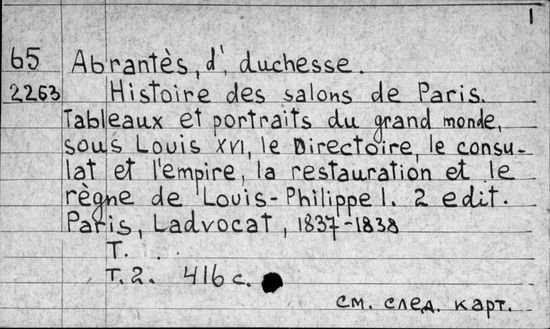 1
65 Abrantès, d', duchesse.
2263 Histoire des salons de Paris.
Tableaux et portraits du grand monde,
sous Louis XVI, le Directoire, le consu-
lat et l'empire, la restauration et le
règne de Louis-Philippe I. 2 edit.
Paris, Ladvocat, 1837-1838
Т.
Т.2. 416 с.
см. след. карт.